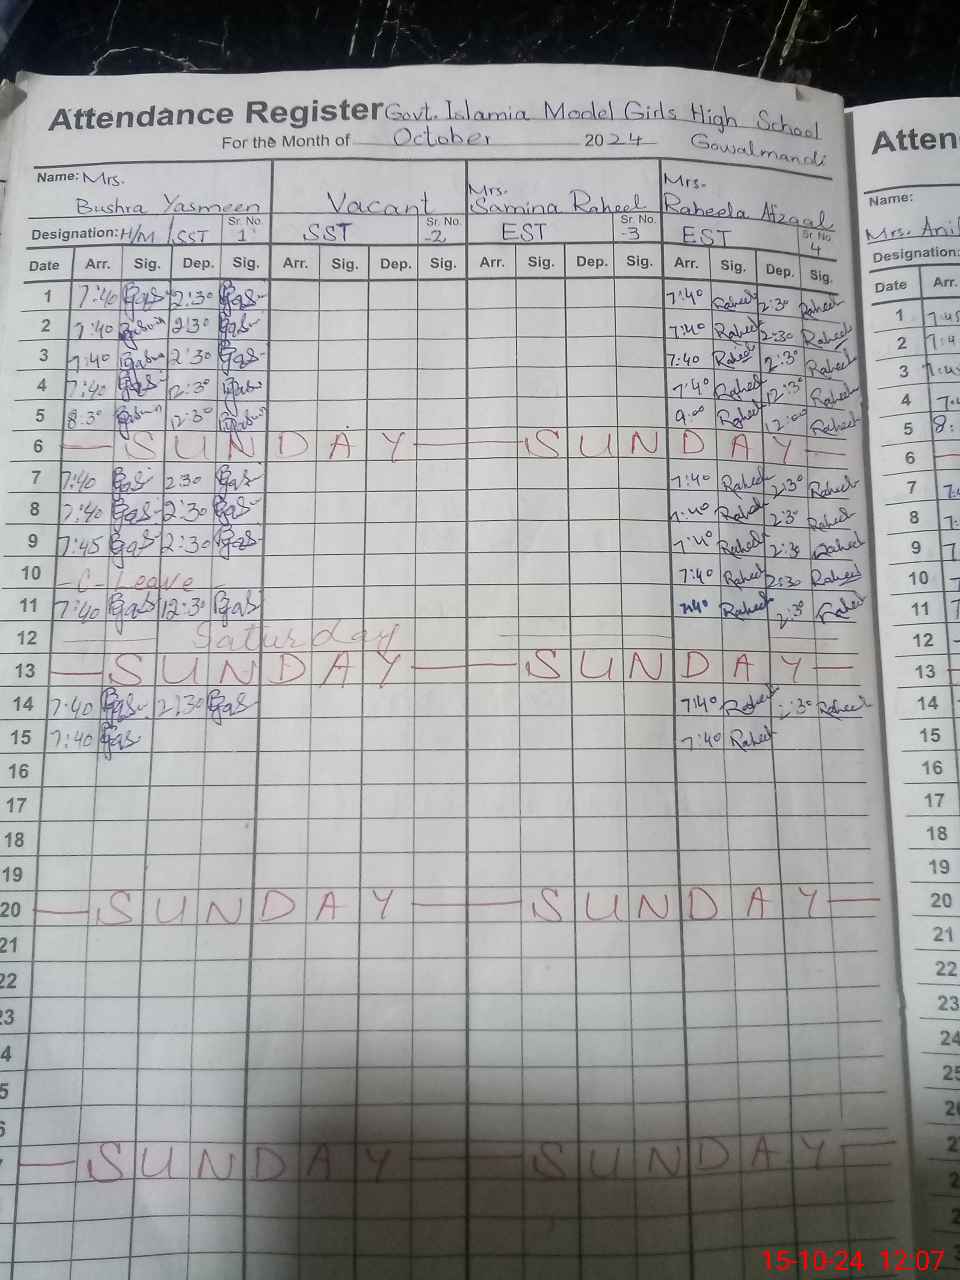 Attendance Register Govt. Islamia Model Girls High School
For the Month of October 2024 Gowalmandi
Name: Mrs. Bushra Yasmeen Vacant Mrs. Samina Raheel Mrs. Raheela Afzaal
Designation: H/M / SST Sr. No. 1 SST Sr. No. -2 EST Sr. No. -3 EST Sr. No 4
Date Arr. Sig. Dep. Sig. Arr. Sig. Dep. Sig. Arr. Sig. Dep. Sig. Arr. Sig. Dep. Sig.
1 7:40 2:30 7:40 Raheel 2:30 Raheel
2 7:40 2:30 7:40 Raheel 2:30 Raheel
3 7:40 2:30 7:40 Raheel 2:30 Raheel
4 7:40 12:30 7:40 Raheel 12:30 Raheel
5 8:30 12:30 9:00 Raheel 12:00 Raheel
6 SUNDAY SUNDAY
7 7:40 2:30 7:40 Raheel 2:30 Raheel
8 7:40 2:30 7:40 Raheel 2:30 Raheel
9 7:45 2:30 7:40 Raheel 2:30 Raheel
10 - C - Leave - 7:40 Raheel 2:30 Raheel
11 7:40 12:30 7:40 Raheel 2:30 Raheel
12 Saturday
13 SUNDAY SUNDAY
14 7:40 2:30 7:40 Raheel 2:30 Raheel
15 7:40 7:40 Raheel
16
17
18
19
20 SUNDAY SUNDAY
21
22
23
4
5
6
SUNDAY SUNDAY
Atten
Name:
Mrs.
Designation:
Date Arr.
1 7:45
2 7:4
3 7:4
4 7:
5 8:
6
7 7:
8 7:
9 7
10 7
11 7
12
13
14
15
16
17
18
19
20
21
22
23
24
25
2
2
2
2
15-10-24 12:07